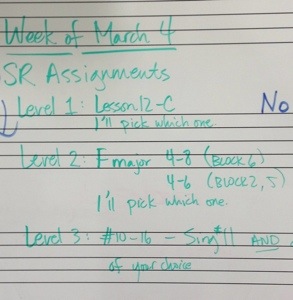 Week of March 4
SR Assignments
Level 1: Lesson 12-C
No
I'll pick which one
Level 2: F major 4-8 (BLOCK 6)
4-6 (BLOCK 2, 5)
I'll pick which one.
Level 3: #10-16 - Sing #11 AND
of your choice